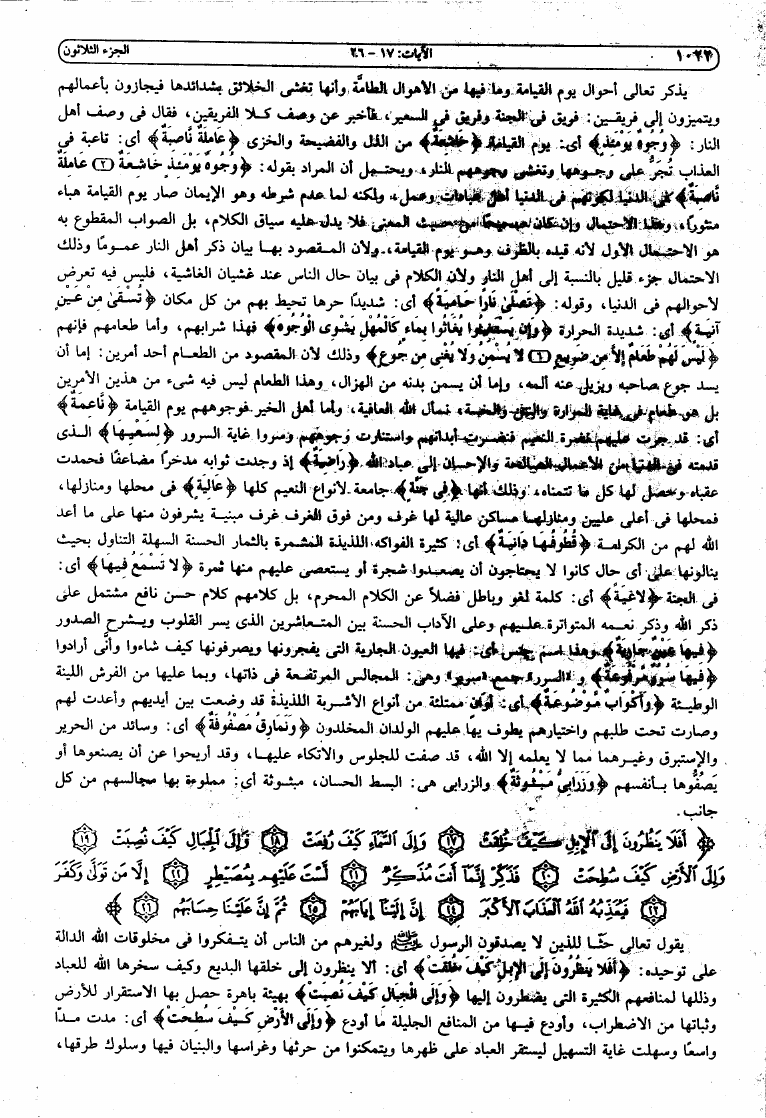 ١٠٢٢ الآيات: ١٧ - ٢٦ الجزء الثلاثون
يذكر تعالى أحوال يوم القيامة وما فيها من الأهوال الطامَّة وأنها تغشى الخلائق بشدائدها فيجازون بأعمالهم
ويتميزون إلى فريقين: فريق فى الجنة وفريق فى السعير، فأخبر عن وصف كلا الفريقين، فقال فى وصف أهل
النار: ﴿وُجُوهٌ يَوْمَئِذٍ﴾ أى: يوم القيامة ﴿خَاشِعَةٌ﴾ من الذل والفضيحة والخزى ﴿عَامِلَةٌ نَّاصِبَةٌ﴾ أى: تاعبة فى
العذاب تُجَرُّ على وجوهها وتغشى وجوههم النار، ويحتمل أن المراد بقوله: ﴿وُجُوهٌ يَوْمَئِذٍ خَاشِعَةٌ (٢) عَامِلَةٌ
نَّاصِبَةٌ﴾ فى الدنيا لكونهم فى الدنيا أهل عبادات وعمل، ولكنه لما عدم شرطه وهو الإيمان صار يوم القيامة هباء
منثوراً، وهذا الاحتمال وإن كان صحيحاً من حيث المعنى فلا يدل عليه سياق الكلام، بل الصواب المقطوع به
هو الاحتمال الأول لأنه قيده بالظرف وهو يوم القيامة، ولأن المقصود بها بيان ذكر أهل النار عموماً وذلك
الاحتمال جزء قليل بالنسبة إلى أهل النار ولأن الكلام فى بيان حال الناس عند غشيان الغاشية، فليس فيه تعرض
لأحوالهم فى الدنيا، وقوله: ﴿تَصْلَىٰ نَارًا حَامِيَةً﴾ أى: شديدًا حرها تحيط بهم من كل مكان ﴿تُسْقَىٰ مِنْ عَيْنٍ
آنِيَةٍ﴾ أى: شديدة الحرارة ﴿وَإِن يَسْتَغِيثُوا يُغَاثُوا بِمَاءٍ كَالْمُهْلِ يَشْوِى الْوُجُوهَ﴾ فهذا شرابهم، وأما طعامهم فإنهم
﴿لَيْسَ لَهُمْ طَعَامٌ إِلاَّ مِن ضَرِيعٍ (٦) لا يُسْمِنُ وَلا يُغْنِى مِن جُوعٍ﴾ وذلك لأن المقصود من الطعام أحد أمرين: إما أن
يسد جوع صاحبه ويزيل عنه ألمه، وإما أن يسمن بدنه من الهزال، وهذا الطعام ليس فيه شىء من هذين الأمرين
بل هو طعام فى غاية المرارة والنتن والخسة، نسأل الله العافية، وأما أهل الخير فوجوههم يوم القيامة ﴿نَّاعِمَةٌ﴾
أى: قد جرت عليهم نضرة النعيم فنضرت أبدانهم واستنارت وجوههم وسروا غاية السرور ﴿لِسَعْيِهَا﴾ الذى
قدمته فى الدنيا من الأعمال الصالحة والإحسان إلى عباد الله ﴿رَاضِيَةٌ﴾ إذ وجدت ثوابه مدخراً مضاعفًا فحمدت
عقباه وحصل لها كل ما تتمناه، وذلك أنها ﴿فِى جَنَّةٍ﴾ جامعة لأنواع النعيم كلها ﴿عَالِيَةٍ﴾ فى محلها ومنازلها،
فمحلها فى أعلى عليين ومنازلها مساكن عالية لها غرف ومن فوق الغرف غرف مبنية يشرفون منها على ما أعد
الله لهم من الكرامة ﴿قُطُوفُهَا دَانِيَةٌ﴾ أى: كثيرة الفواكه اللذيذة المثمرة بالثمار الحسنة السهلة التناول بحيث
ينالونها على أى حال كانوا لا يحتاجون أن يصعدوا شجرة أو يستعصى عليهم منها ثمرة ﴿لا تَسْمَعُ فِيهَا﴾ أى:
فى الجنة ﴿لاغِيَةً﴾ أى: كلمة لغو وباطل فضلاً عن الكلام المحرم، بل كلامهم كلام حسن نافع مشتمل على
ذكر الله وذكر نعمه المتواترة عليهم وعلى الآداب الحسنة بين المتعاشرين الذى يسر القلوب ويشرح الصدور
﴿فِيهَا عَيْنٌ جَارِيَةٌ﴾ وهذا اسم جنس أى: فيها العيون الجارية التى يفجرونها ويصرفونها كيف شاءوا وأنَّى أرادوا
﴿فِيهَا سُرُرٌ مَّرْفُوعَةٌ﴾ و «السرر» جمع «سرير» وهى: المجالس المرتفعة فى ذاتها، وبما عليها من الفرش اللينة
الوطيئة ﴿وَأَكْوَابٌ مَّوْضُوعَةٌ﴾ أى: أوانٍ ممتلئة من أنواع الأشربة اللذيذة قد وضعت بين أيديهم وأعدت لهم
وصارت تحت طلبهم واختيارهم يطوف بها عليهم الولدان المخلدون ﴿وَنَمَارِقُ مَصْفُوفَةٌ﴾ أى: وسائد من الحرير
والإستبرق وغيرهما مما لا يعلمه إلا الله، قد صفت للجلوس والاتكاء عليها، وقد أريحوا عن أن يصنعوها أو
يَصُفُّوها بأنفسهم ﴿وَزَرَابِىُّ مَبْثُوثَةٌ﴾ والزرابى هى: البسط الحسان، مبثوثة أى: مملوءة بها مجالسهم من كل
جانب.
﴿ أَفَلَا يَنظُرُونَ إِلَى ٱلْإِبِلِ كَيْفَ خُلِقَتْ ١٧ وَإِلَى ٱلسَّمَآءِ كَيْفَ رُفِعَتْ ١٨ وَإِلَى ٱلْجِبَالِ كَيْفَ نُصِبَتْ ١٩
وَإِلَى ٱلْأَرْضِ كَيْفَ سُطِحَتْ ٢٠ فَذَكِّرْ إِنَّمَآ أَنتَ مُذَكِّرٌ ٢١ لَّسْتَ عَلَيْهِم بِمُصَيْطِرٍ ٢٢ إِلَّا مَن تَوَلَّىٰ وَكَفَرَ
٢٣ فَيُعَذِّبُهُ ٱللَّهُ ٱلْعَذَابَ ٱلْأَكْبَرَ ٢٤ إِنَّ إِلَيْنَآ إِيَابَهُمْ ٢٥ ثُمَّ إِنَّ عَلَيْنَا حِسَابَهُم ٢٦ ﴾
يقول تعالى حثًا للذين لا يصدقون الرسول ﷺ ولغيرهم من الناس أن يتفكروا فى مخلوقات الله الدالة
على توحيده: ﴿أَفَلا يَنظُرُونَ إِلَى الإِبِلِ كَيْفَ خُلِقَتْ﴾ أى: ألا ينظرون إلى خلقها البديع وكيف سخرها الله للعباد
وذللها لمنافعهم الكثيرة التى يضطرون إليها ﴿وَإِلَى الْجِبَالِ كَيْفَ نُصِبَتْ﴾ بهيئة باهرة حصل بها الاستقرار للأرض
وثباتها من الاضطراب، وأودع فيها من المنافع الجليلة ما أودع ﴿وَإِلَى الأَرْضِ كَيْفَ سُطِحَتْ﴾ أى: مدت مدًا
واسعاً وسهلت غاية التسهيل ليستقر العباد على ظهرها ويتمكنوا من حرثها وغراسها والبنيان فيها وسلوك طرقها،